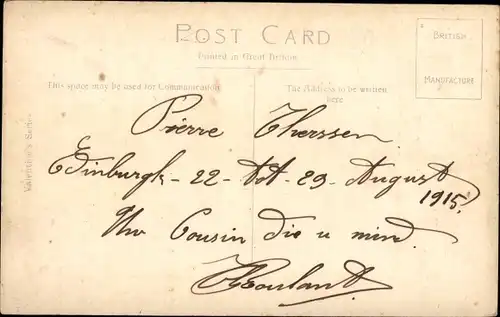 POST CARD
Printed in Great Britain
This space may be used for Communication
The Address to be written
here
BRITISH
MANUFACTURE
Valentine's Series
Pierre Therssen
Edinburgh - 22 - tot - 29 - August
1915.
Uw Cousin die u mind.